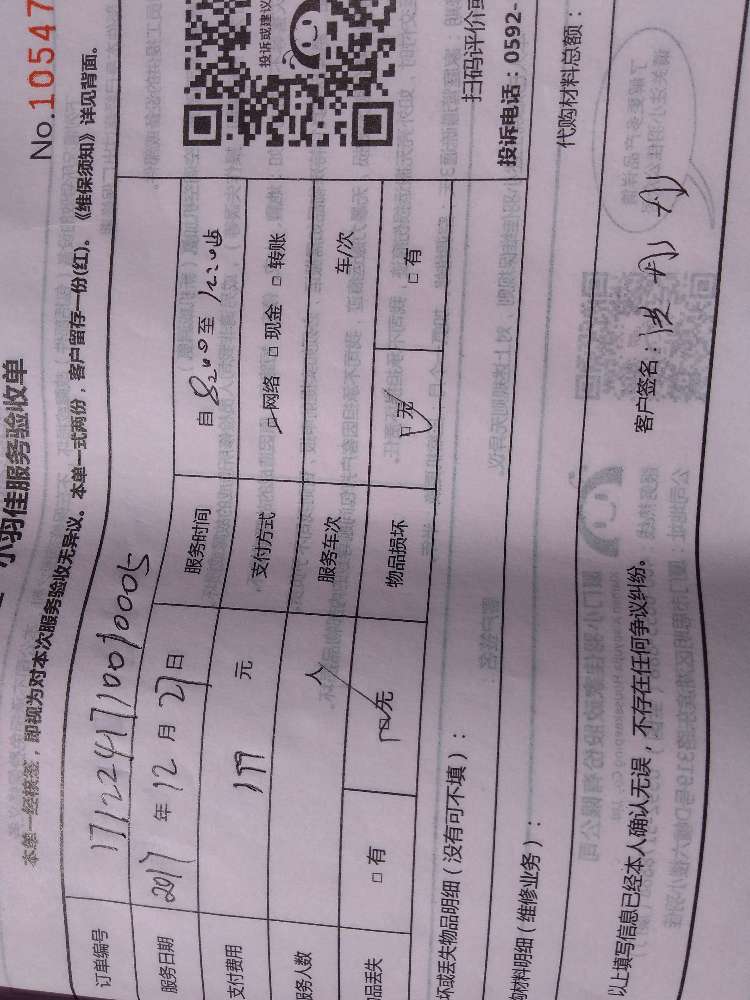 No.10547
小羽佳服务验收单
本单一经核签，即视为对本次服务验收无异议。本单一式两份，客户留存一份(红)。《维保须知》详见背面。
订单编号
服务日期 2017 年 12 月 27 日 服务时间 自 8:00 至
支付费用 177 元 支付方式 □网络 □现金 □转账
服务人数 人 服务车次 车/次
品丢失 □有 □无 物品损坏 □无 □有
投诉或建议
扫码评价或
投诉电话：0592-
坏或丢失物品明细（没有可不填）：
购材料明细（维修业务）：
代购材料总额：
以上填写信息已经本人确认无误，不存在任何争议纠纷。
客户签名：